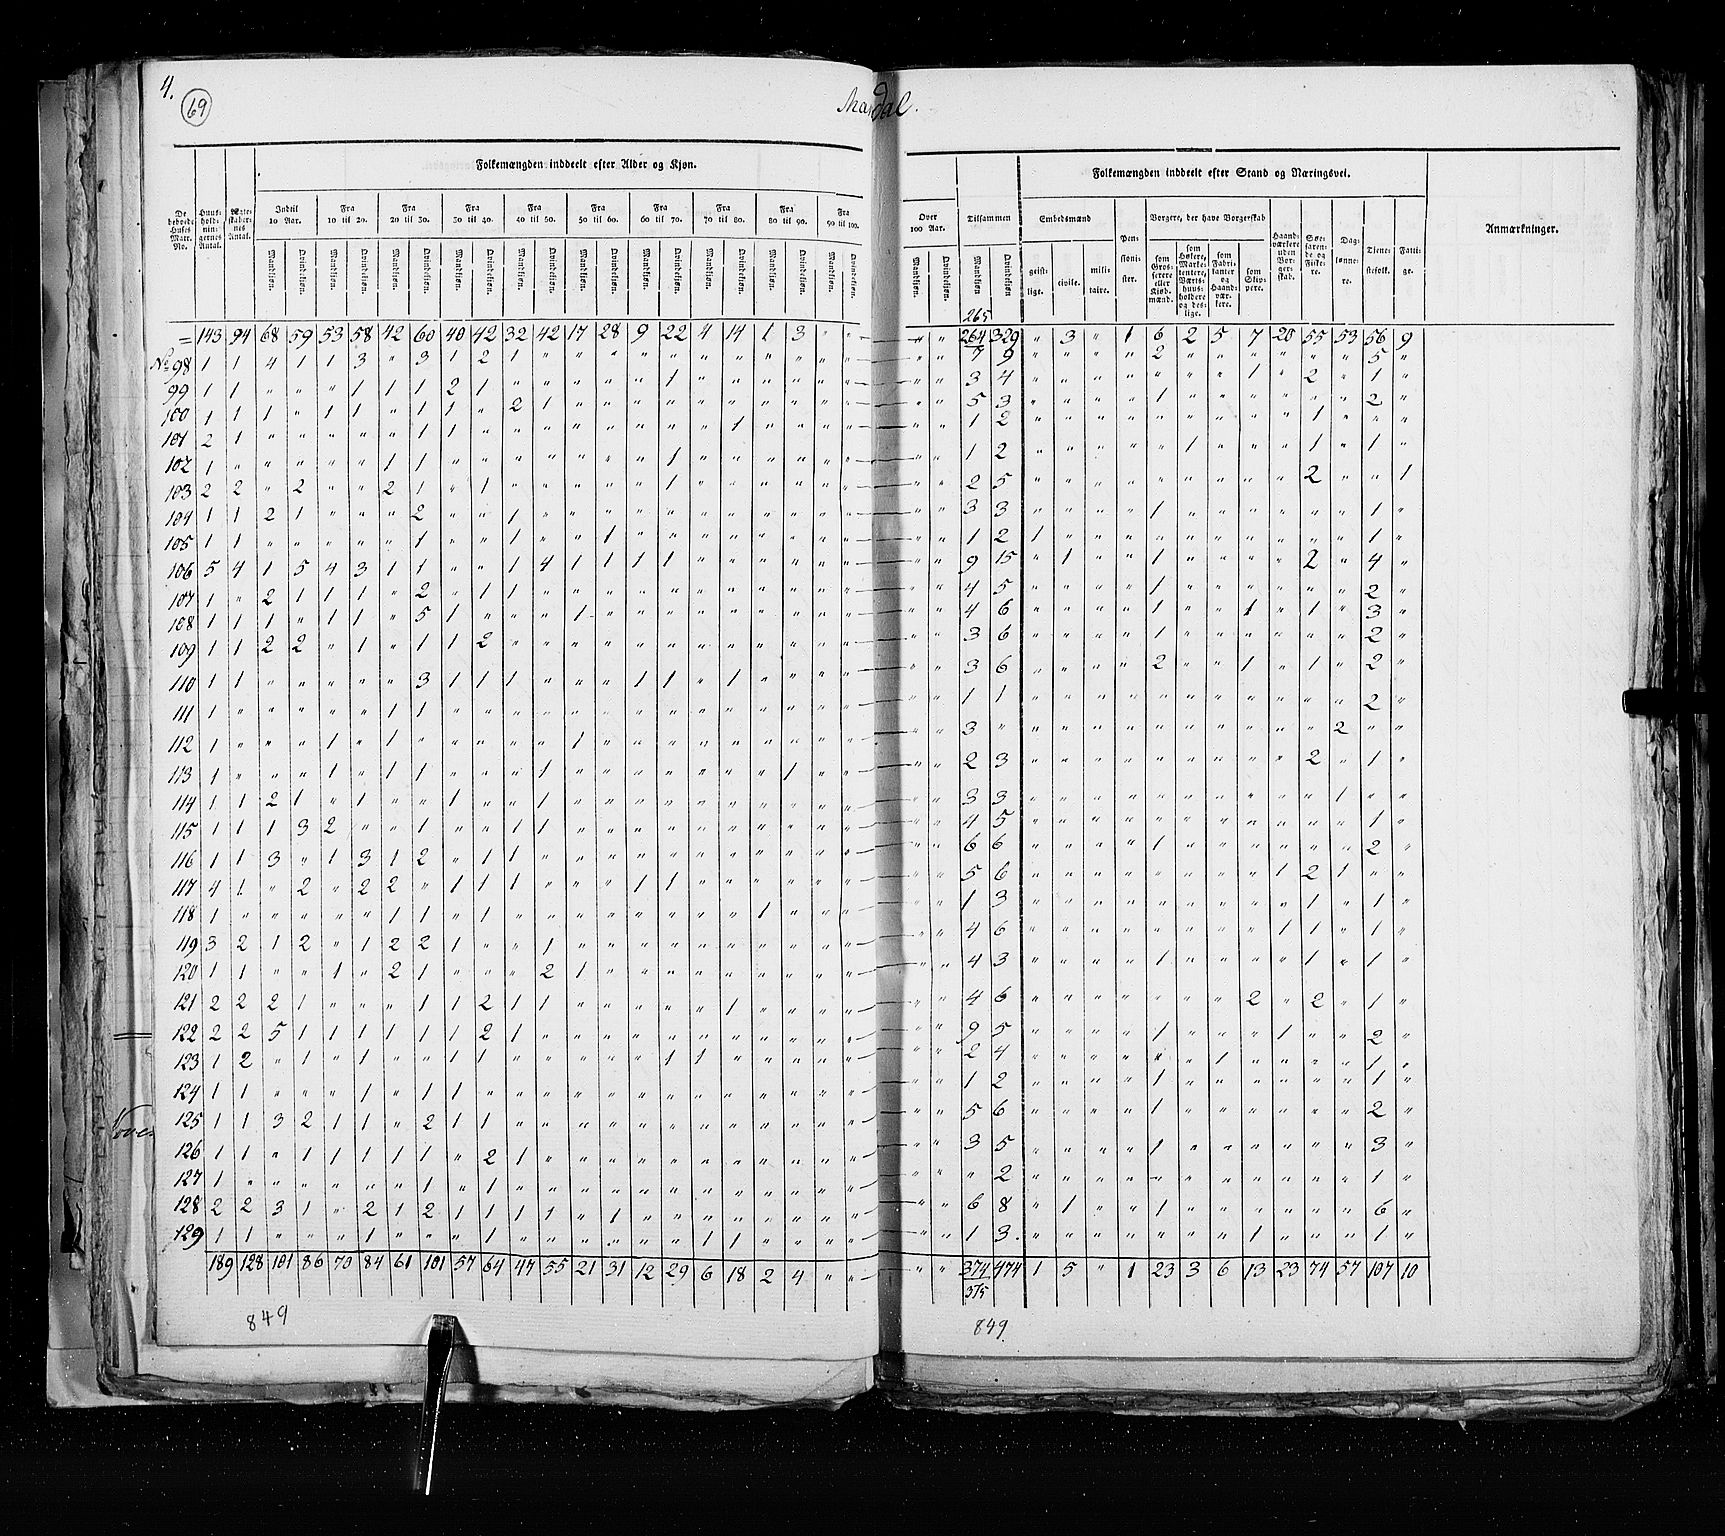 4.
69
Mandal.
Folkemængden inddeelt efter Alder og Kjøn.
Folkemængden inddeelt efter Stand og Næringsvei.
De beboede Huses Matr. No.
Huus- hold- nin- gernes Antal.
Ægte- skaber- nes Antal.
Indtil 10 Aar.
Fra 10 til 20.
Fra 20 til 30.
Fra 30 til 40.
Fra 40 til 50.
Fra 50 til 60.
Fra 60 til 70.
Fra 70 til 80.
Fra 80 til 90.
Fra 90 til 100.
Over 100 Aar.
Tilsammen
Mandkjøn. Qvindekjøn.
Embedsmænd
geist- lige. civile. mili- taire.
Pen- sioni- ster.
Borgere, der have Borgerskab
som Gros- serere eller Kjøb- mænd.
som Høkere, Marke- tentere, Værts- huus- holdere og des- lige.
som Fabri- kanter og Haand- vær- kere.
som Skip- pere.
Haand- værkere uden Bor- ger- skab.
Søe- faren- de og Fiske- re.
Dag- lønne- re.
Tiene- stefolk.
Fatti- ge.
Anmærkninger.
265
= 143 94 68 59 53 58 42 60 40 42 32 42 17 28 9 22 4 14 1 3 " " " " 264 329 " 3 " 1 6 2 5 7 20 55 53 56 9
No 98 1 1 4 1 1 3 " 3 1 2 1 " " " " " " " " " " " " " 7 9 " " " " 2 " " " " " " 5 "
99 1 1 " " " 1 1 1 2 1 " " " " " 1 " " " " " " " " 3 4 " " " " " " " 1 " 2 " 1 "
100 1 1 1 " 1 1 " 1 1 " 2 1 " " " " " " " " " " " " 5 3 " " " " 1 " " " " " " 2 "
101 2 1 " " " " " 1 1 " " " " " " " " 1 " " " " " " 1 2 " " " " " " " " " 1 " " "
102 1 " " " " " 1 1 " " " " " " " 1 " " " " " " " " 1 2 " " " " " 1 " " " 1 " 1 "
103 2 2 " 2 " " 2 1 " 1 " " " " " 1 " " " " " " " " 2 5 " " " " " " " " " 2 " " 1
104 1 1 2 1 " " " 2 " " 1 " " " " " " " " " " " " " 3 3 " " " " 1 " " " " " " 1 "
105 1 1 " " " " " 1 " " 1 " " 1 " " " " " " " " " " 1 2 1 " " " " " " " " " " 1 "
106 5 4 1 5 4 3 1 1 " " 1 4 1 1 1 1 " " " " " " " " 9 15 " 1 " " 1 " " " " 2 " 4 "
107 1 " 2 1 1 1 " 2 " 1 1 " " " " " " " " " " " " " 4 5 " " " " 1 " " " " " " 2 "
108 1 1 1 " 1 1 " 5 1 " " " 1 " " " " " " " " " " " 4 6 " " " " 1 " " 1 " 1 " 3 "
109 1 1 2 2 " 1 " 1 1 2 " " " " " " " " " " " " " " 3 6 " " " " 1 " " " " " " 2 "
110 1 1 " " " " " 3 1 1 1 " " " 1 1 " 1 " " " " " " 3 6 " " " " 2 " " 1 " 1 " 2 "
111 1 " " " " " 1 1 " " " " " " " " " " " " " " " " 1 1 " " " " " " " " " " " 2 "
112 1 " " " 1 " 1 " " " " " 1 " " " " " " " " " " " 3 " " " " " " " " " " " 2 " "
113 1 " " " 1 " 1 1 " " " 1 " " " " " " " 1 " " " " 2 3 " " " " " " " " " 2 " 1 "
114 1 1 2 1 " 1 " " 1 " " 1 " " " " " " " " " " " " 3 3 " " " " " " " " " " 1 " "
115 1 1 1 3 2 " " 1 " " 1 1 " " " " " " " " " " " " 4 5 " " " " " " " " " " " 1 "
116 1 1 3 " 1 3 1 2 " 1 1 " " " " " " " " " " " " " 6 6 " " " " 1 " " " " " " 2 "
117 4 1 " 2 " 2 2 " 1 1 1 " " " 1 1 " " " " " " " " 5 6 " " " " " " " " 1 2 1 " "
118 1 " " " " " 1 1 " 1 " " " " " " " " " 1 " " " " 1 3 " " " " " " " " " 1 " 1 "
119 3 2 1 2 " 1 2 2 1 " " 1 " " " " " " " " " " " " 4 6 " " " " " " " " 1 1 " 1 "
120 1 1 " " 1 " 2 1 " " " 2 1 " " " " " " " " " " " 4 3 " " " " 1 " " " " 1 " 1 "
121 2 2 2 1 " " " 1 1 2 1 1 " " " " " 1 " " " " " " 4 6 " " " " " " " 2 " 2 " 1 "
122 2 2 5 1 1 1 1 1 1 2 1 " " " " " " " " " " " " " 9 5 " " " " 1 " " " 1 " " 2 "
123 1 2 " 1 " 1 " " 1 1 " " " " " 1 1 " " " " " " " 2 4 " " " " " " 1 " " " " 1 "
124 1 1 " " " 1 " 1 1 " " " " " " " " " " " " " " " 1 2 " " " " 1 " " " " " " 1 "
125 1 1 3 2 1 1 " 2 1 1 " " " " " " " " " " " " " " 5 6 " " " " 1 " " " " " " 2 "
126 1 1 " 1 1 1 1 1 " 2 1 " " " " " " " " " " " " " 3 5 " " " " 1 " " " " " " 3 "
127 1 " " " " " " 1 " 1 " " " " " " " " " " " " " " " 2 " " " " " " " " " " " 1 "
128 2 2 3 1 " 2 1 2 1 1 1 1 " 1 " " " " " " " " " " 6 8 " 1 " " 1 " " " " " " 6 "
129 1 1 " " " 1 " " " 1 " " " " " " 1 1 " " " " " " 1 3 " " " " " " " 1 " " " 1 "
189 128 101 86 70 84 61 101 57 64 47 55 21 31 12 29 6 18 2 4 " " " " 374 474 1 5 " 1 23 3 6 13 23 74 57 107 10
375
849
849